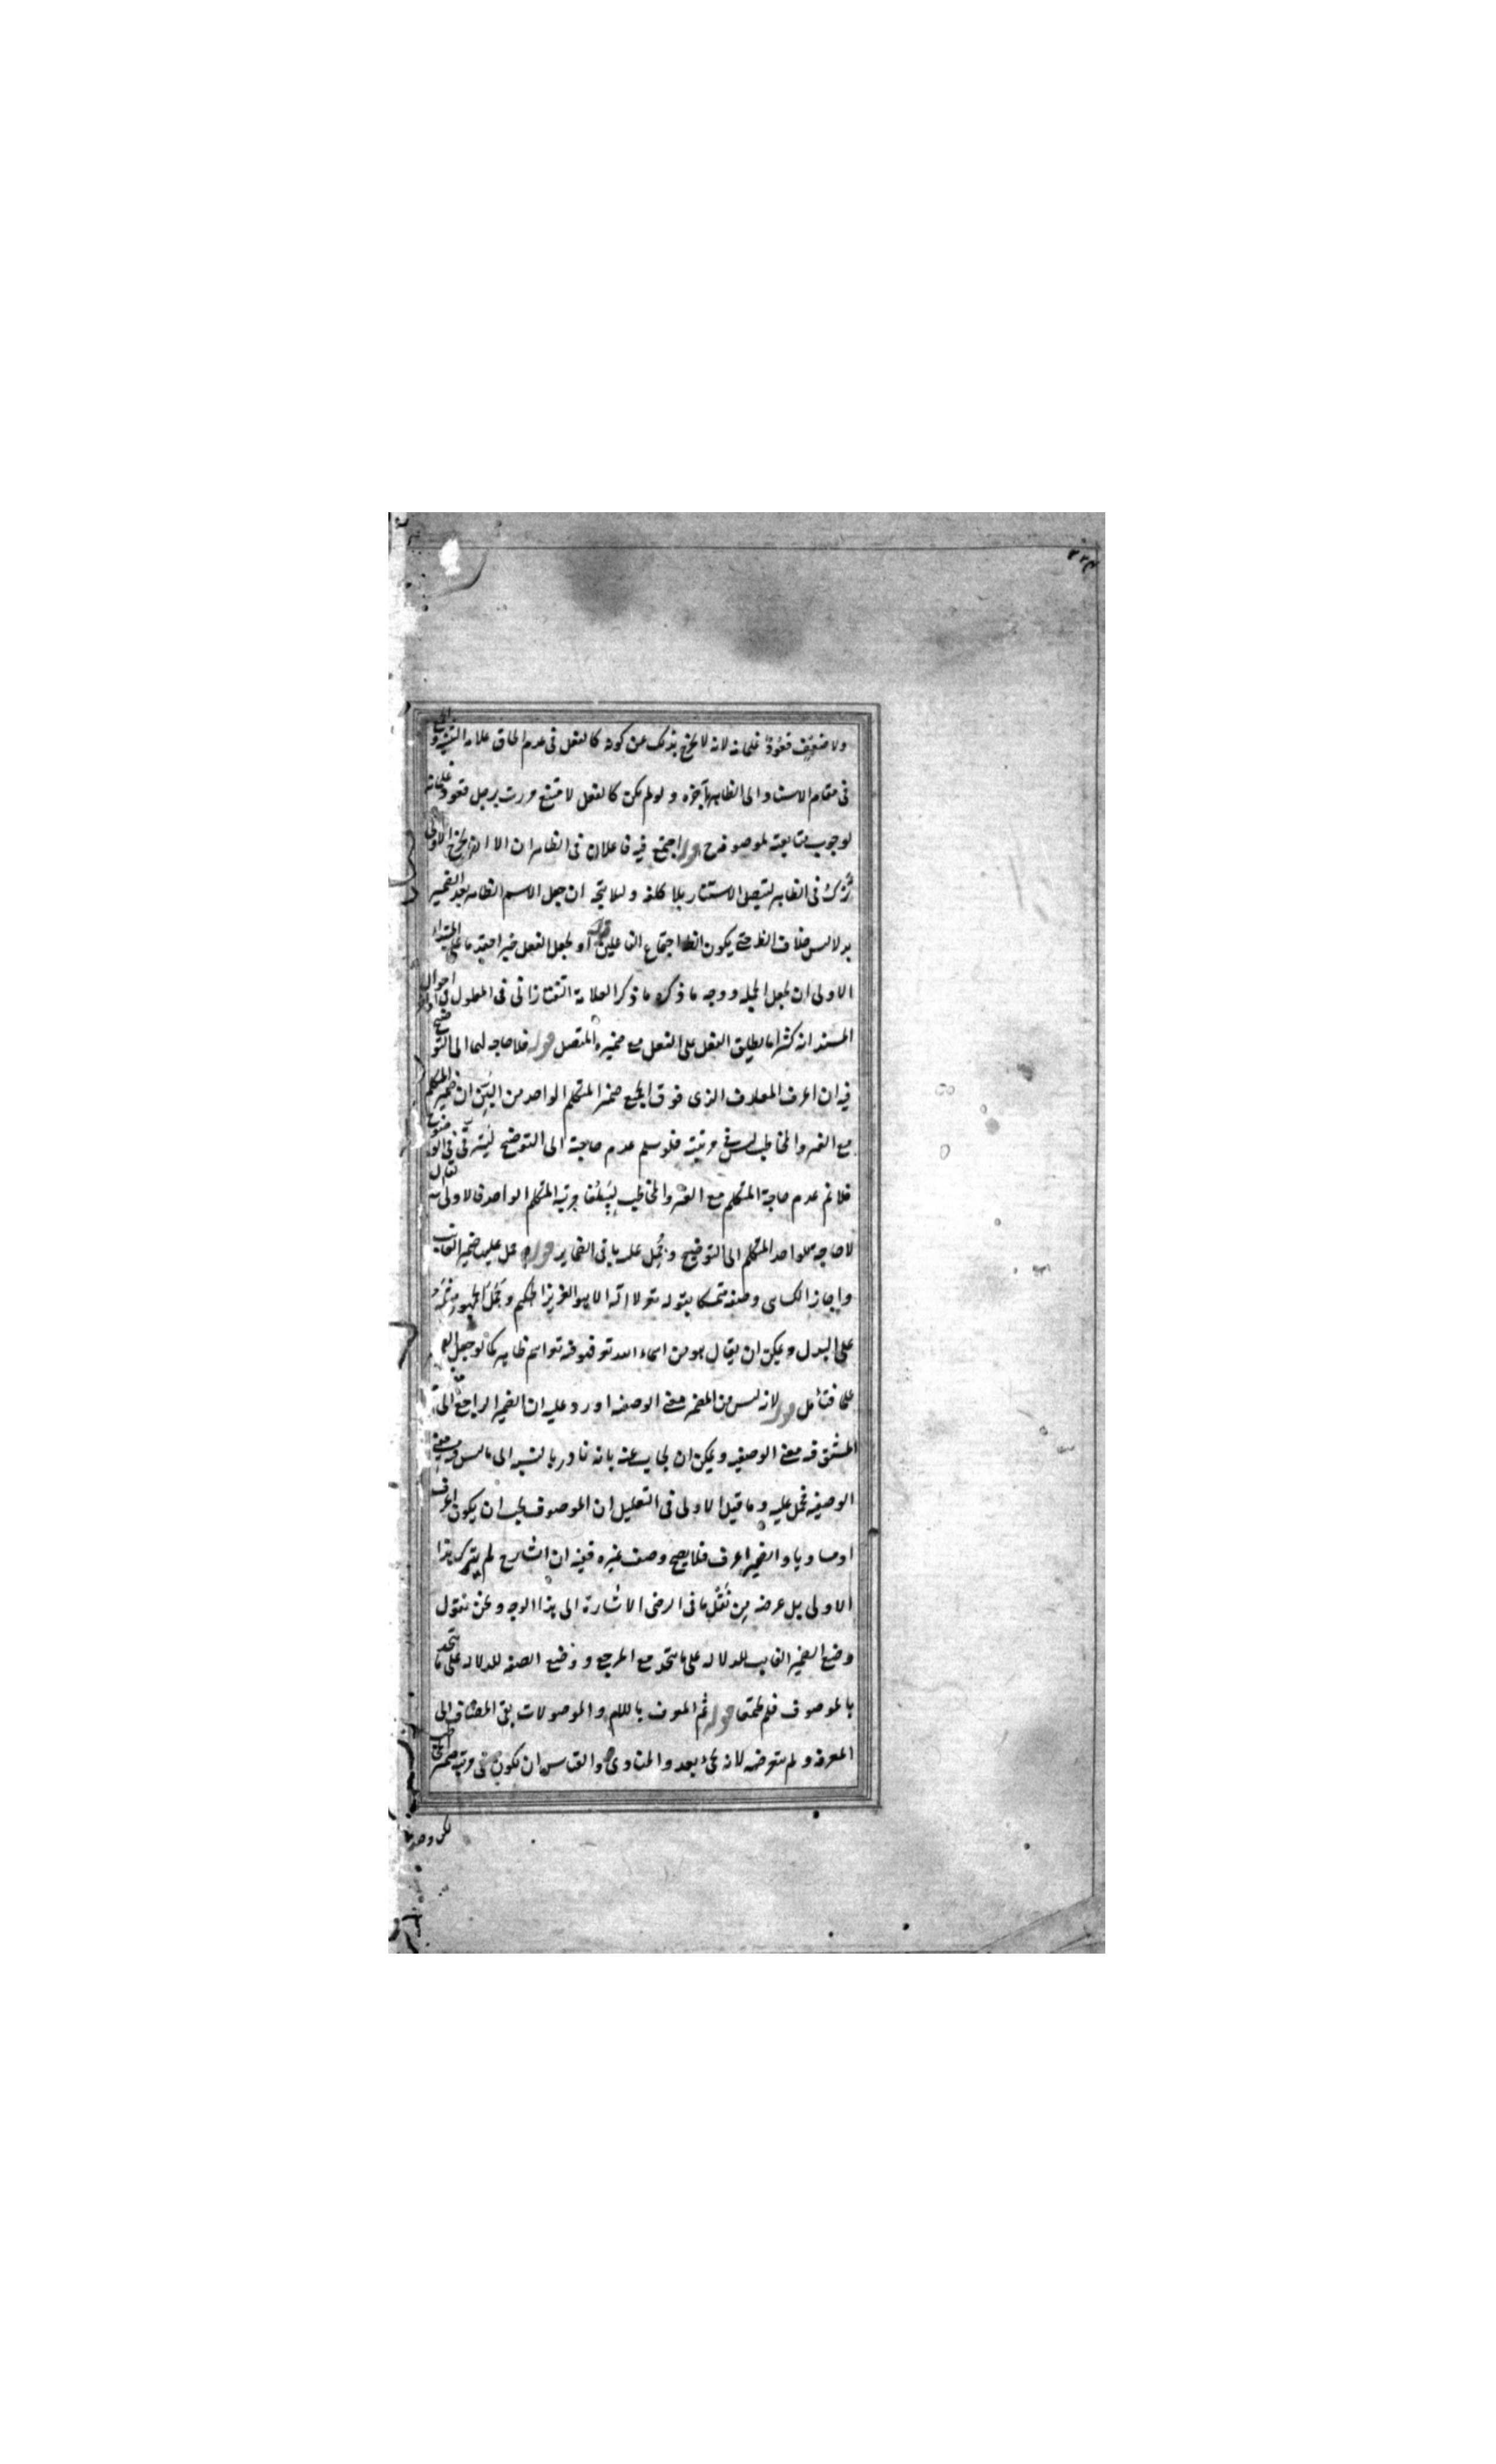 ولا ضعف قعود غلمانه لانه لا يخرج بذلك عن كونه كالفعل فى عدم الحاق علامة التثنية والجمع
فى مقام الاسناد الى الظاهر و لو لم يكن كالفعل لامتنع مررت برجل قعود غلمانه
لوجوب متابعته لموصوفه ح قوله اجتمع فيه فاعلان فى الظاهر ان الا ان يخرج الاولى
ترك فى الظاهر ليتصل الاستتار بلا كلفة و لئلا يتجه ان جعل الاسم الظاهر بعد الضمير
بدلا ليس خلاف الظ حتى يكون اجتماع الفاعلين قوله او يجعل الفعل خبرا مقدما على المبتداء
الاولى ان يجعل الجملة و وجه ما ذكره ما ذكر العلامة التفتازانى فى المطول فى احوال
المسند انه كثيرا ما يطلق الفعل على الفعل مع ضميره المتصل قوله فلا حاجة لهما الى التوضيح
فيه ان اعرف المعارف الذى فوق الجميع ضمير المتكلم الواحد من البين ان ضمير المتكلم
مع الغير والمخاطب ليس فى مرتبته فلو سلم عدم حاجة الى التوضيح
فلا نم عدم حاجة المتكلم مع الغير والمخاطب مرتبة المتكلم الواحد فالاولى ان يقال
لا حاجة للواحد المتكلم الى التوضيح و حمل عليه باقى الضماير قوله حمل عليه ضمير الغائب
واجاز الكسائى وصفه متمسكا بقوله تعو لا اله الا هو العزيز الحكيم و حمل الجمهور
على البدل و يمكن ان يقال هو من اسماء الله تعو اسم ظاهر كما لو جعل
علما فتأمل قوله لانه ليس من المضمر معنى الوصفية اورد عليه ان الضمير الراجع الى
المشتق فيه معنى الوصفية و يمكن ان يجاب عنه بانه نادر بالنسبة الى ما ليس فيه معنى
الوصفية فحمل عليه و ما قيل الاولى فى التعليل ان الموصوف يجب ان يكون اعرف
او مساويا و الضمير اعرف فلا يصح وصف غيره ففيه ان الشارح لم يترك هذا
الاولى بل غرضه من نقل ما فى الرضى الاشارة الى هذا الوجه و نحن نقول
وضع الضمير الغايب للدلالة على ما يتحد مع المرجع و وضع الصفة للدلالة على ما يتحد
بالموصوف فلم قوله ثم المعرف باللام و الموصولات بقى المضاف الى
المعرفة و لم يتعرضه لانه يجئ بعد و المنادى و القياس ان يكون فى مرتبة ضمير المخاطب
لكن وصف